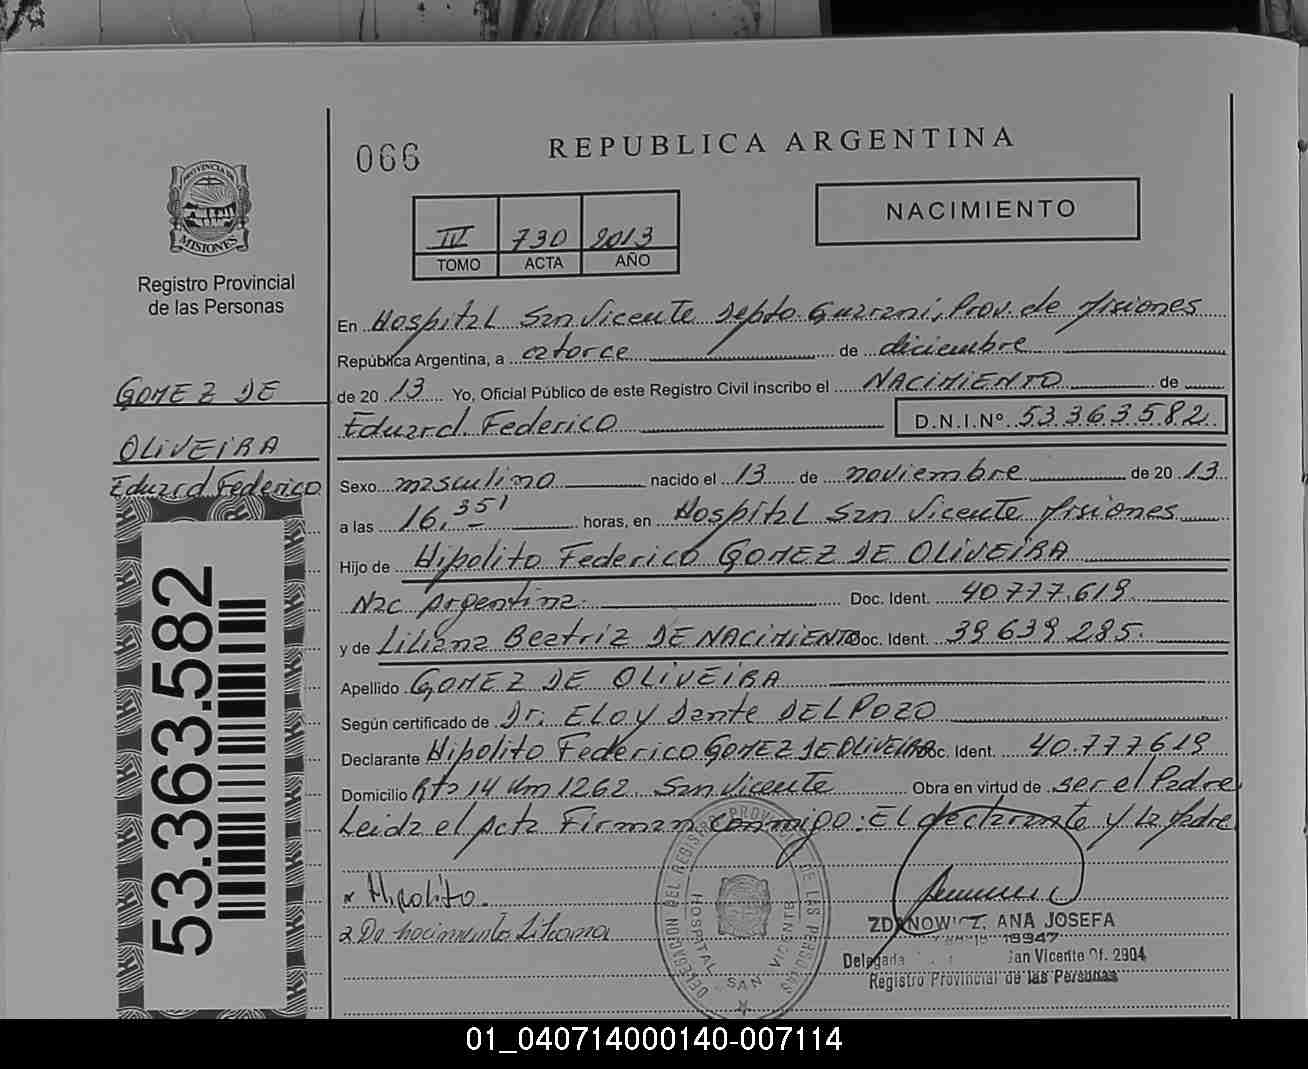 066
REPUBLICA ARGENTINA
NACIMIENTO
IV 730 2013
TOMO ACTA AÑO
PROVINCIA DE
MISIONES
Registro Provincial
de las Personas
En Hospital San Vicente Depto Guarani, Prov. de Misiones
República Argentina, a catorce de diciembre
de 2013 Yo, Oficial Público de este Registro Civil inscribo el NACIMIENTO de
Eduard Federico D.N.I.Nº 53363582
GOMEZ DE
OLIVEIRA
Eduard Federico
53.363.582
Sexo masculino nacido el 13 de noviembre de 2013
a las 16,35' horas, en Hospital San Vicente Misiones
Hijo de Hipolito Federico GOMEZ DE OLIVEIRA
Nac Argentina. Doc. Ident. 40.777.619
y de Liliana Beatriz DE NACIMIENTO Doc. Ident. 39639285.
Apellido GOMEZ DE OLIVEIRA
Según certificado de Dr. ELOY Dante DEL POZO
Declarante Hipolito Federico GOMEZ DE OLIVEIRA Doc. Ident. 40.777619
Domicilio Rta 14 Km 1262 San Vicente Obra en virtud de ser el Padre
Leida el Acta Firman conmigo: El declarante y la Madre
x Hipolito.
2 De nacimiento Liliana
DELEGACION DEL REGISTRO PROVINCIAL DE LAS PERSONAS
HOSPITAL SAN VICENTE
ZDANOWICZ, ANA JOSEFA
19947
Delegada San Vicente Of. 2904
Registro Provincial de las Personas
01_040714000140-007114